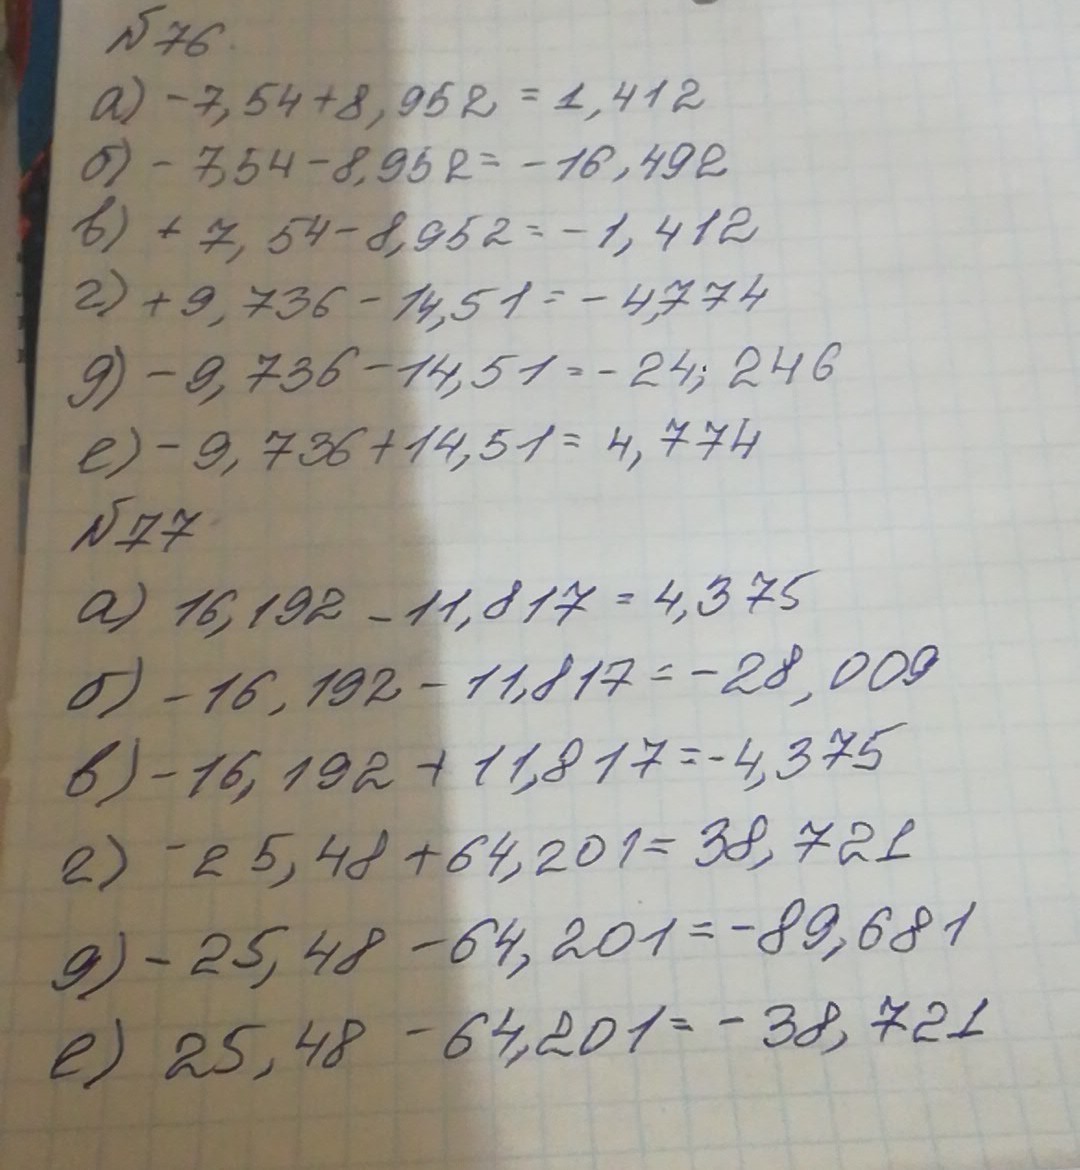 №76.
а) -7,54+8,952 = 1,412
б) -7,54-8,952= -16,492
в) +7,54-8,952=-1,412
г) +9,736-14,51=-4,774
д) -9,736-14,51=-24;246
е) -9,736+14,51= 4,774
№77
а) 16,192-11,817=4,375
б) -16,192-11,817=-28,009
в) -16,192+11,817=-4,375
г) -25,48+64,201=38,721
д) -25,48-64,201=-89,681
е) 25,48-64,201=-38,721